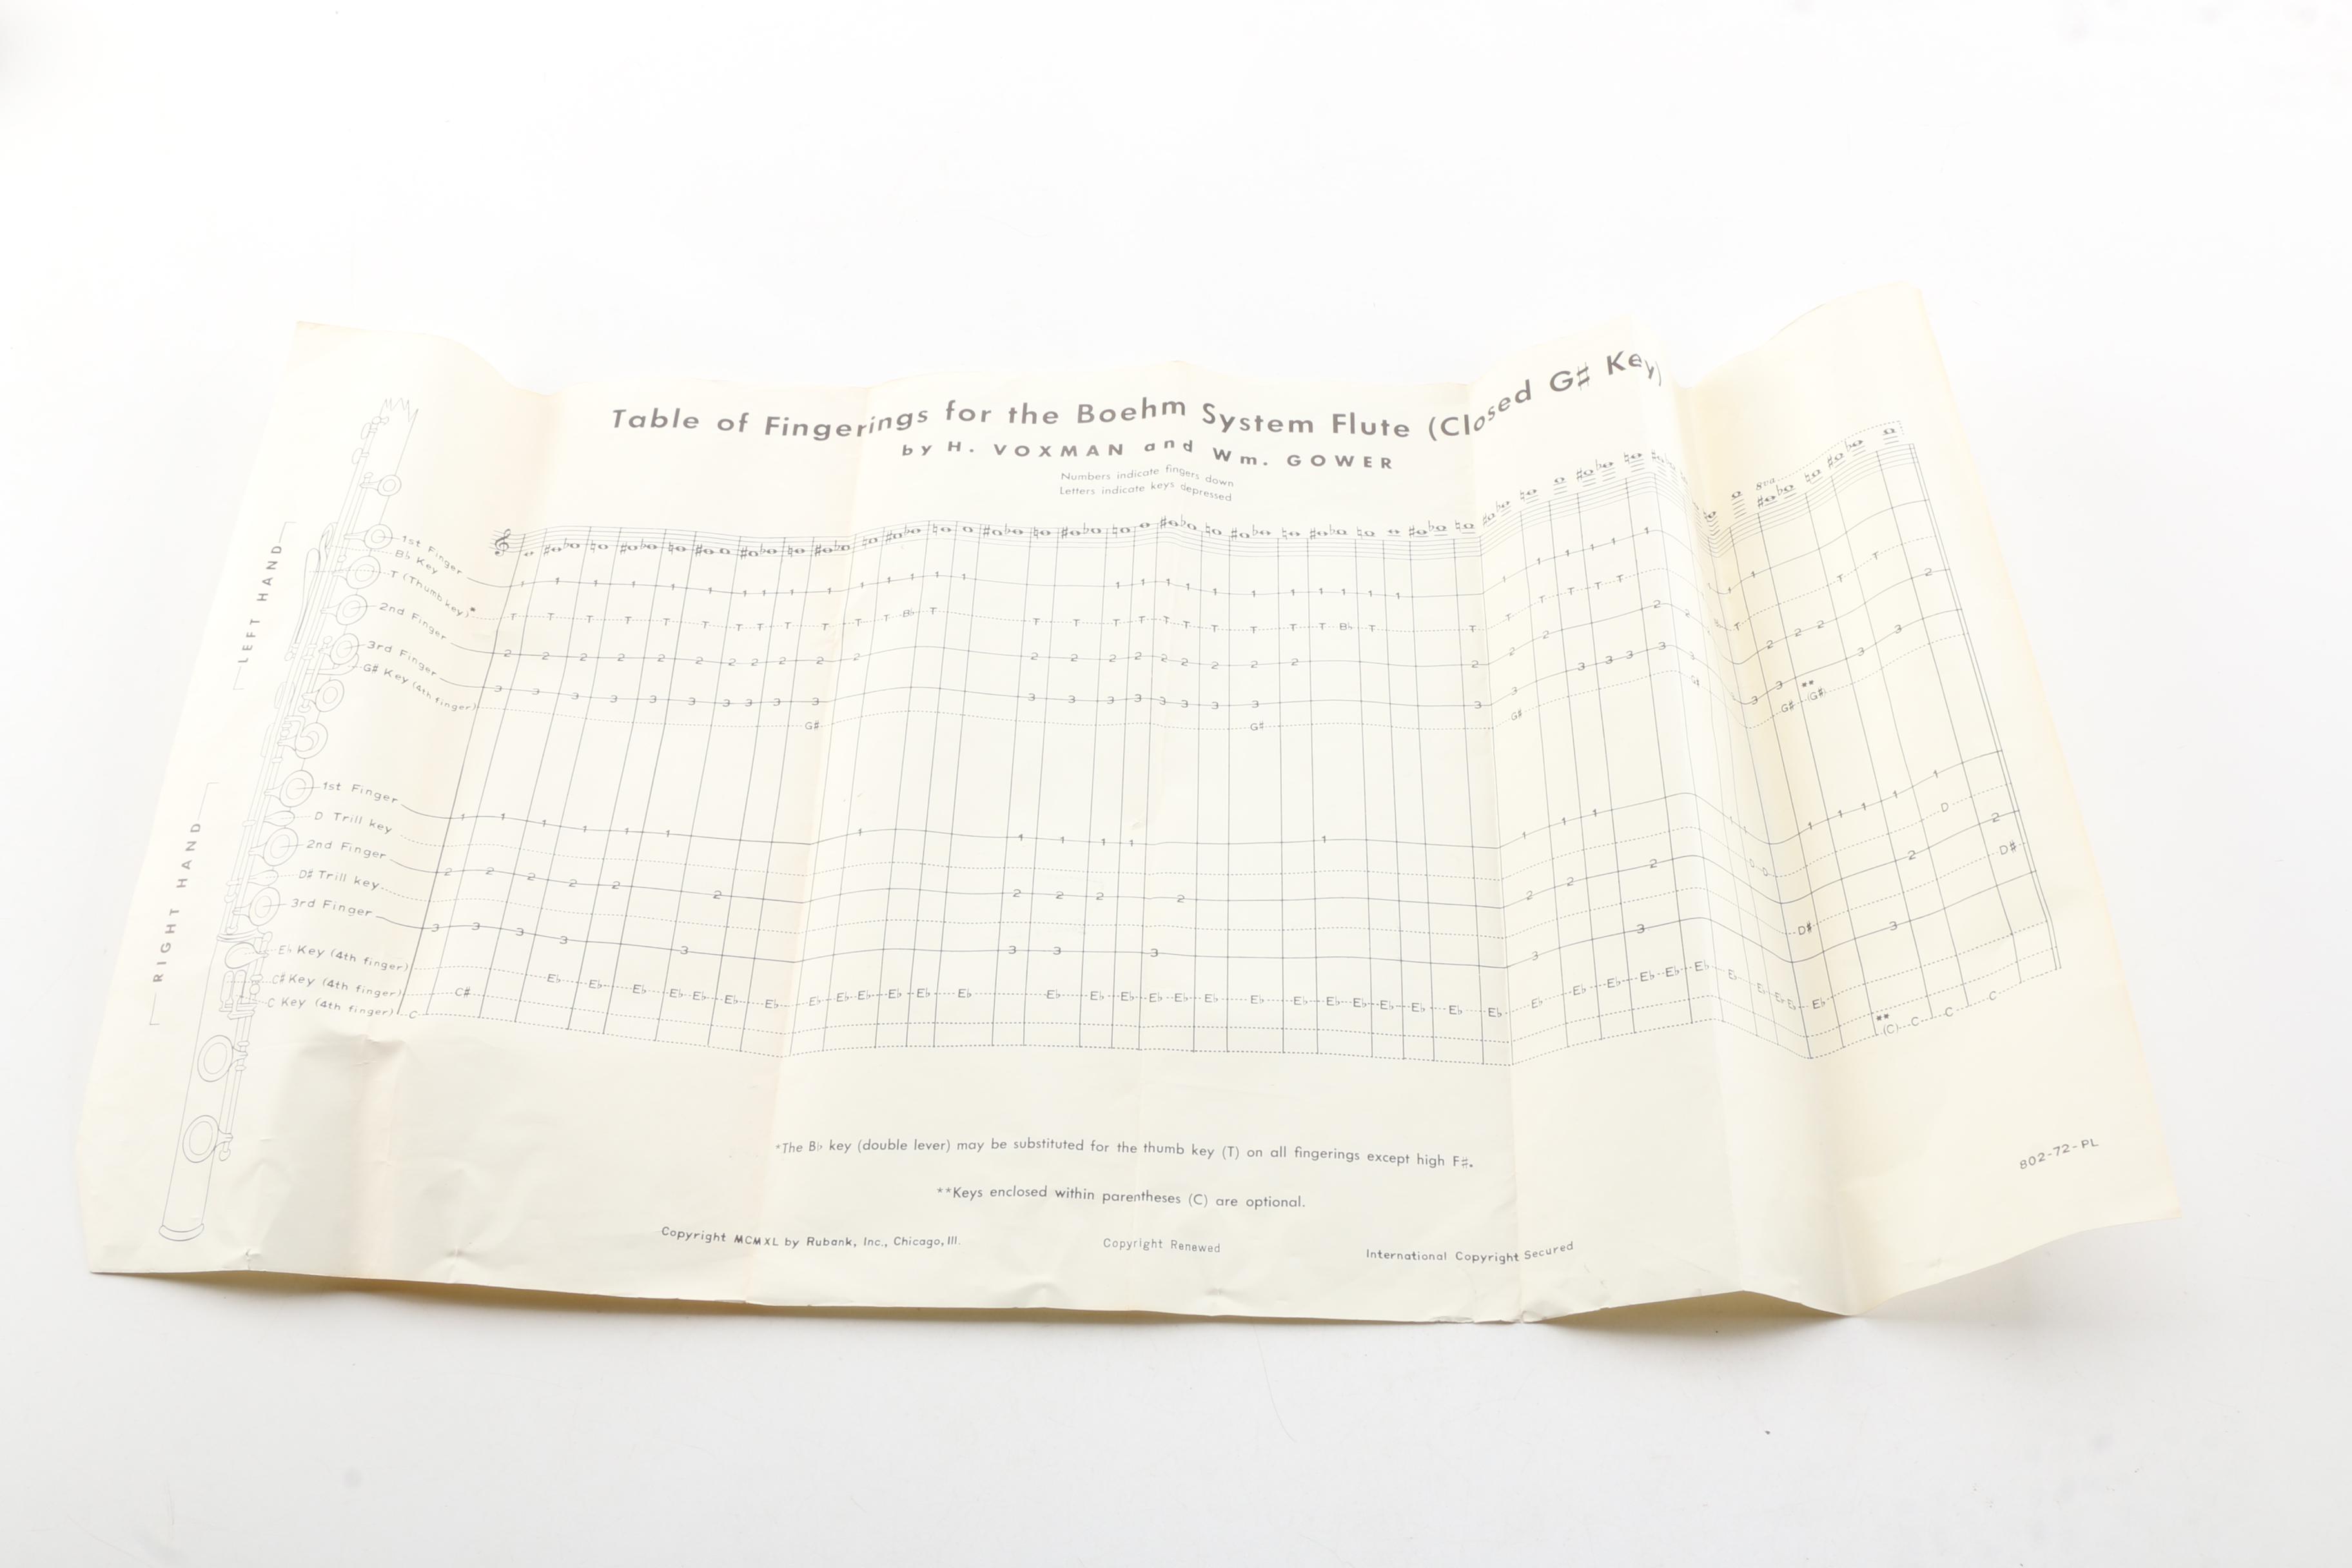 Table of Fingerings for the Boehm System Flute (Closed G♯ Key)
by H. VOXMAN and Wm. GOWER
Numbers indicate fingers down
Letters indicate keys depressed
LEFT HAND
1st Finger
B♭ Key
T (Thumb key)*
2nd Finger
3rd Finger
G♯ Key (4th finger)
RIGHT HAND
1st Finger
D Trill key
2nd Finger
D♯ Trill key
3rd Finger
E♭ Key (4th finger)
C♯ Key (4th finger)
C Key (4th finger)
8va
*The B♭ key (double lever) may be substituted for the thumb key (T) on all fingerings except high F♯.
**Keys enclosed within parentheses (C) are optional.
802-72-PL
Copyright MCMXL by Rubank, Inc., Chicago, Ill.
Copyright Renewed
International Copyright Secured